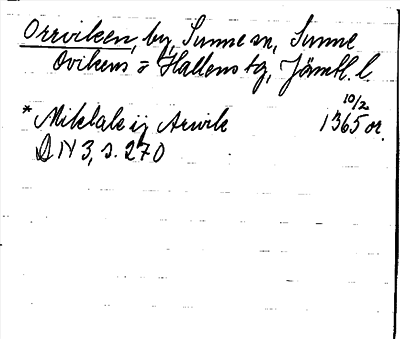 Orrviken, by, Sunne sn, Sunne
Ovikens o Hallens tg, Jämtl. l.
10/2
* Miklals ij Arwik 1365 or.
DN 3, s. 270